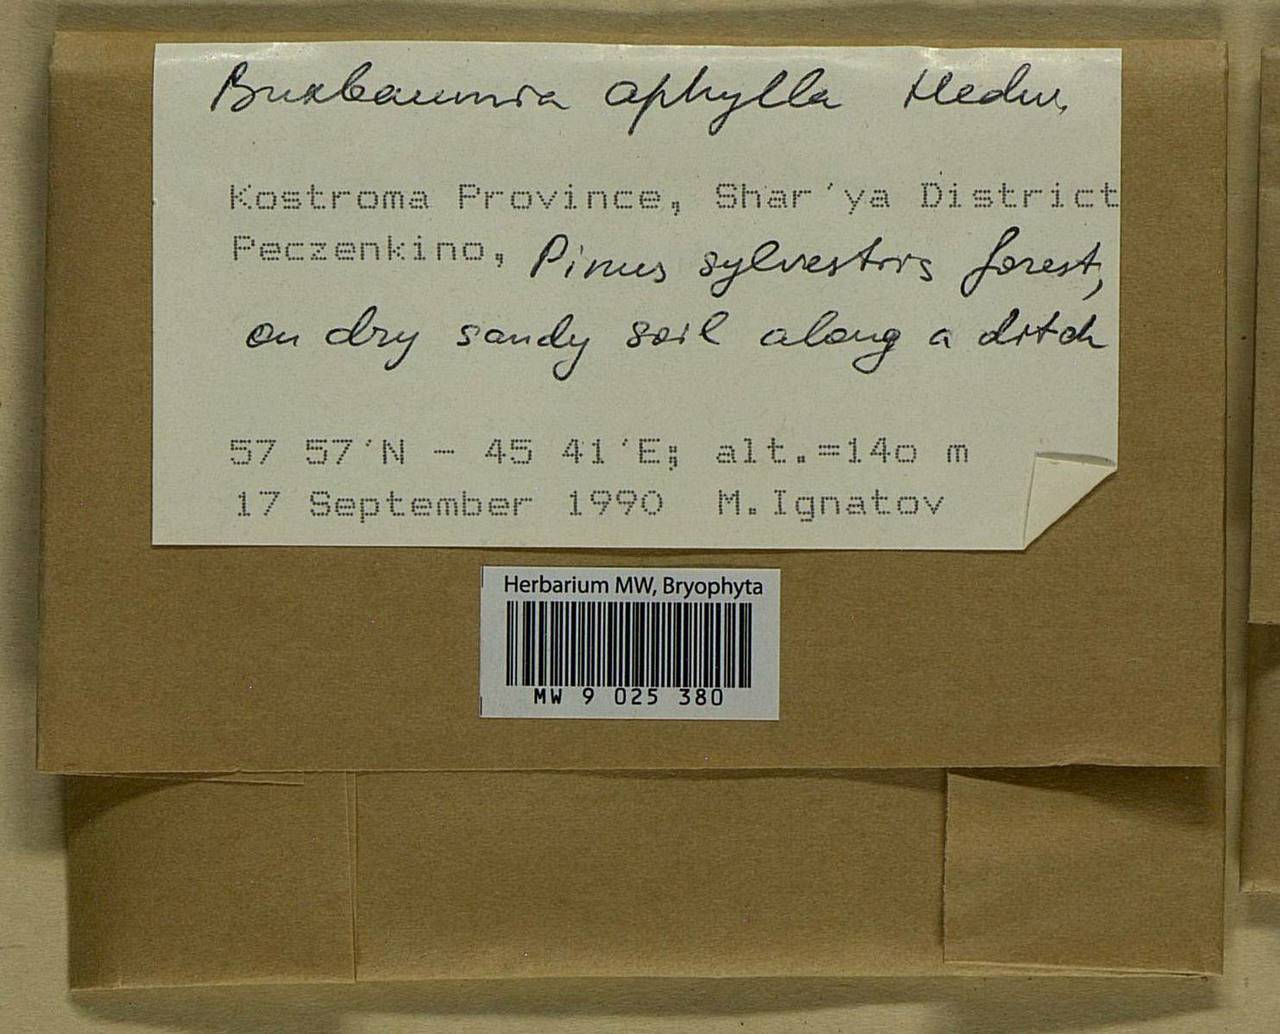 Buxbaumia aphylla Hedw.
Kostroma Province, Shar'ya District
Peczenkino, Pinus sylvestris forest,
on dry sandy soil along a ditch
57 57'N - 45 41'E; alt.=14o m
17 September 1990 M.Ignatov
Herbarium MW, Bryophyta
MW 9 025 380